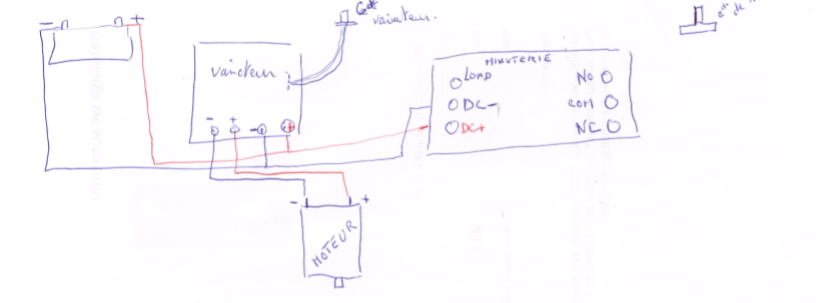 - +
variateur.
variateur
- + - +
MINUTERIE
LOAD
DC-
DC+
NO
COM
NC
- +
MOTEUR